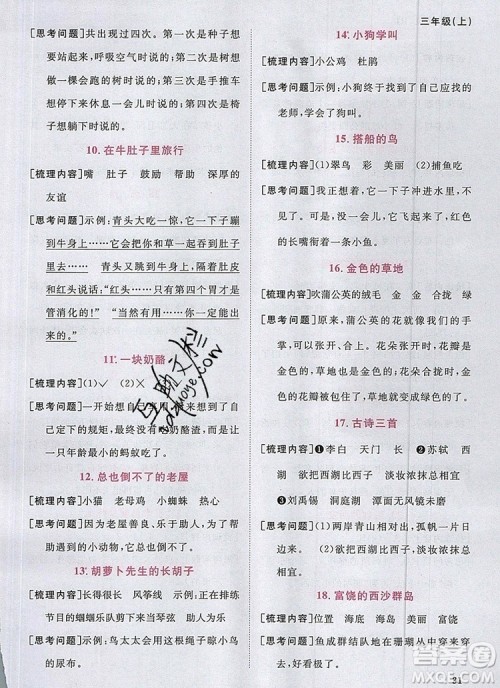 三年级(上)
[思考问题]共出现过四次。第一次是肚子
想时,呼吸空气时说的。第二次是
想做一棵会跑的树,骑自行车跑起
来的时候说的。第三次是手推车
想停也停不住时说的。第四次是椅子
想躺下时说的。
10.在牛肚子里旅行
[梳理内容]嘴 肚子 鼓励 帮助 深厚的
友谊
[思考问题]示例:青头大吃一惊,它一下子蹦
到牛身上……它一下子蹿到牛肚子里
去了……青头又跳到牛身上,隔着肚皮
和红头说话:“红头……第四个胃才是
管消化的!”
11.一块奶酪
[梳理内容](1)✓ (2)×
[思考问题]一开始想自己享用,后来想到自
己定下的规矩,最终没有动奶酪渣,而是让
一只年龄最小的蚂蚁吃了。
12.总也倒不了的老屋
[梳理内容]小猫 老母鸡 小蜘蛛 热心
[思考问题]示例:因为老屋善良,乐于助人,
为了帮助遇到困难的小动物,它总是不倒。
13.胡萝卜先生的长胡子
[梳理内容]长得很长 风筝线 示例:正在排练
节目的蝈蝈乐队剪下来当琴弦,帮助了
他们
[思考问题]示例:鸟太太会用它来晾晒小鸟
的尿布。
14.小狗学叫
[梳理内容]小公鸡 杜鹃
[思考问题]示例:小狗终于找到了自己的
老师,学会了狗叫。
15.搭船的鸟
[梳理内容](1)翠鸟 彩 美丽 (2)捕鱼吃
[思考问题]我正想着,它一下子冲进水里,不
见了。可是,没一会儿,它飞起来了,红色
的长嘴衔着一条小鱼。
16.金色的草地
[梳理内容]吹蒲公英的绒毛 金 金 合拢 绿
[思考问题]原来,蒲公英的花就像我们的手
掌,可以张开、合上。花朵张开时,花瓣
是金色的,草地也是金色的;花朵合拢时,
金色的花瓣被包住了,草地就变成绿
色的了。
17.古诗三首
[梳理内容]❶李白 天门 长 ❷苏轼 西
湖 欲把西湖比西子 淡妆浓抹总相宜
❸刘禹锡 洞庭湖 潭面无风镜未磨
[思考问题](1)两岸青山相对出,孤帆一片日
边来。 (2)示例:欲把西湖比西子,
淡妆浓抹总相宜。
18.富饶的西沙群岛
[梳理内容]位置 海底 海岛 美丽 富饶
[思考问题]鱼成群结队地在珊瑚丛中穿来
穿去,好看极了。
31
互助文栏